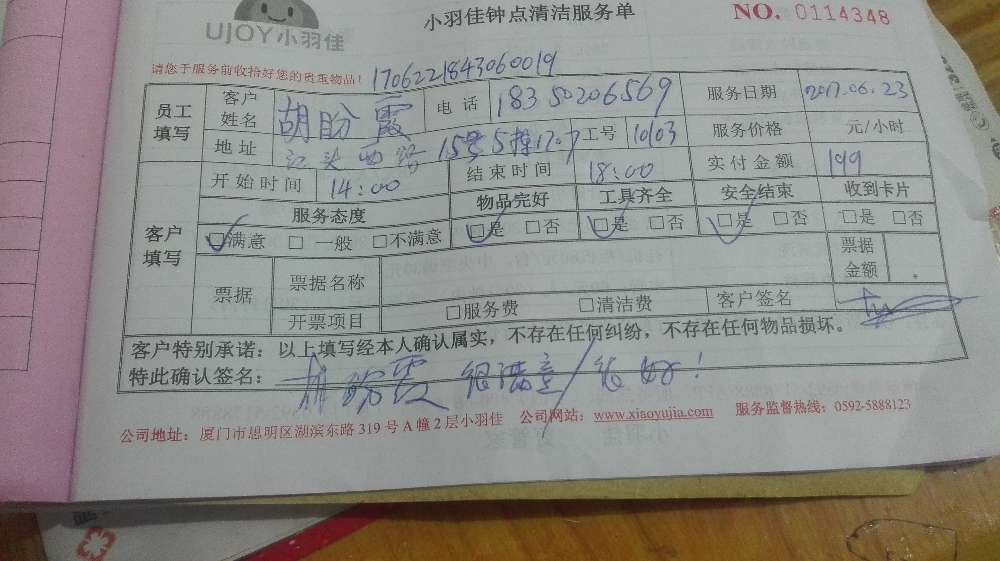 UJOY小羽佳
小羽佳钟点清洁服务单
NO. 0114348
请您于服务前收拾好您的贵重物品！ 1706221843060019
员工填写 客户姓名 胡盼霞 电话 18350206569 服务日期 2017.06.23
地址 江头西路15号5栋1207 工号 1003 服务价格 元/小时
开始时间 14:00 结束时间 18:00 实付金额 199
客户填写 服务态度 物品完好 工具齐全 安全结束 收到卡片
□满意 □一般 □不满意 □是 □否 □是 □否 □是 □否 □是 □否
票据 票据名称 票据金额
开票项目 □服务费 □清洁费 客户签名
客户特别承诺：以上填写经本人确认属实，不存在任何纠纷，不存在任何物品损坏。
特此确认签名： 胡盼霞 很满意 很好！
公司地址：厦门市思明区湖滨东路319号A幢2层小羽佳 公司网站：www.xiaoyujia.com 服务监督热线：0592-5888123